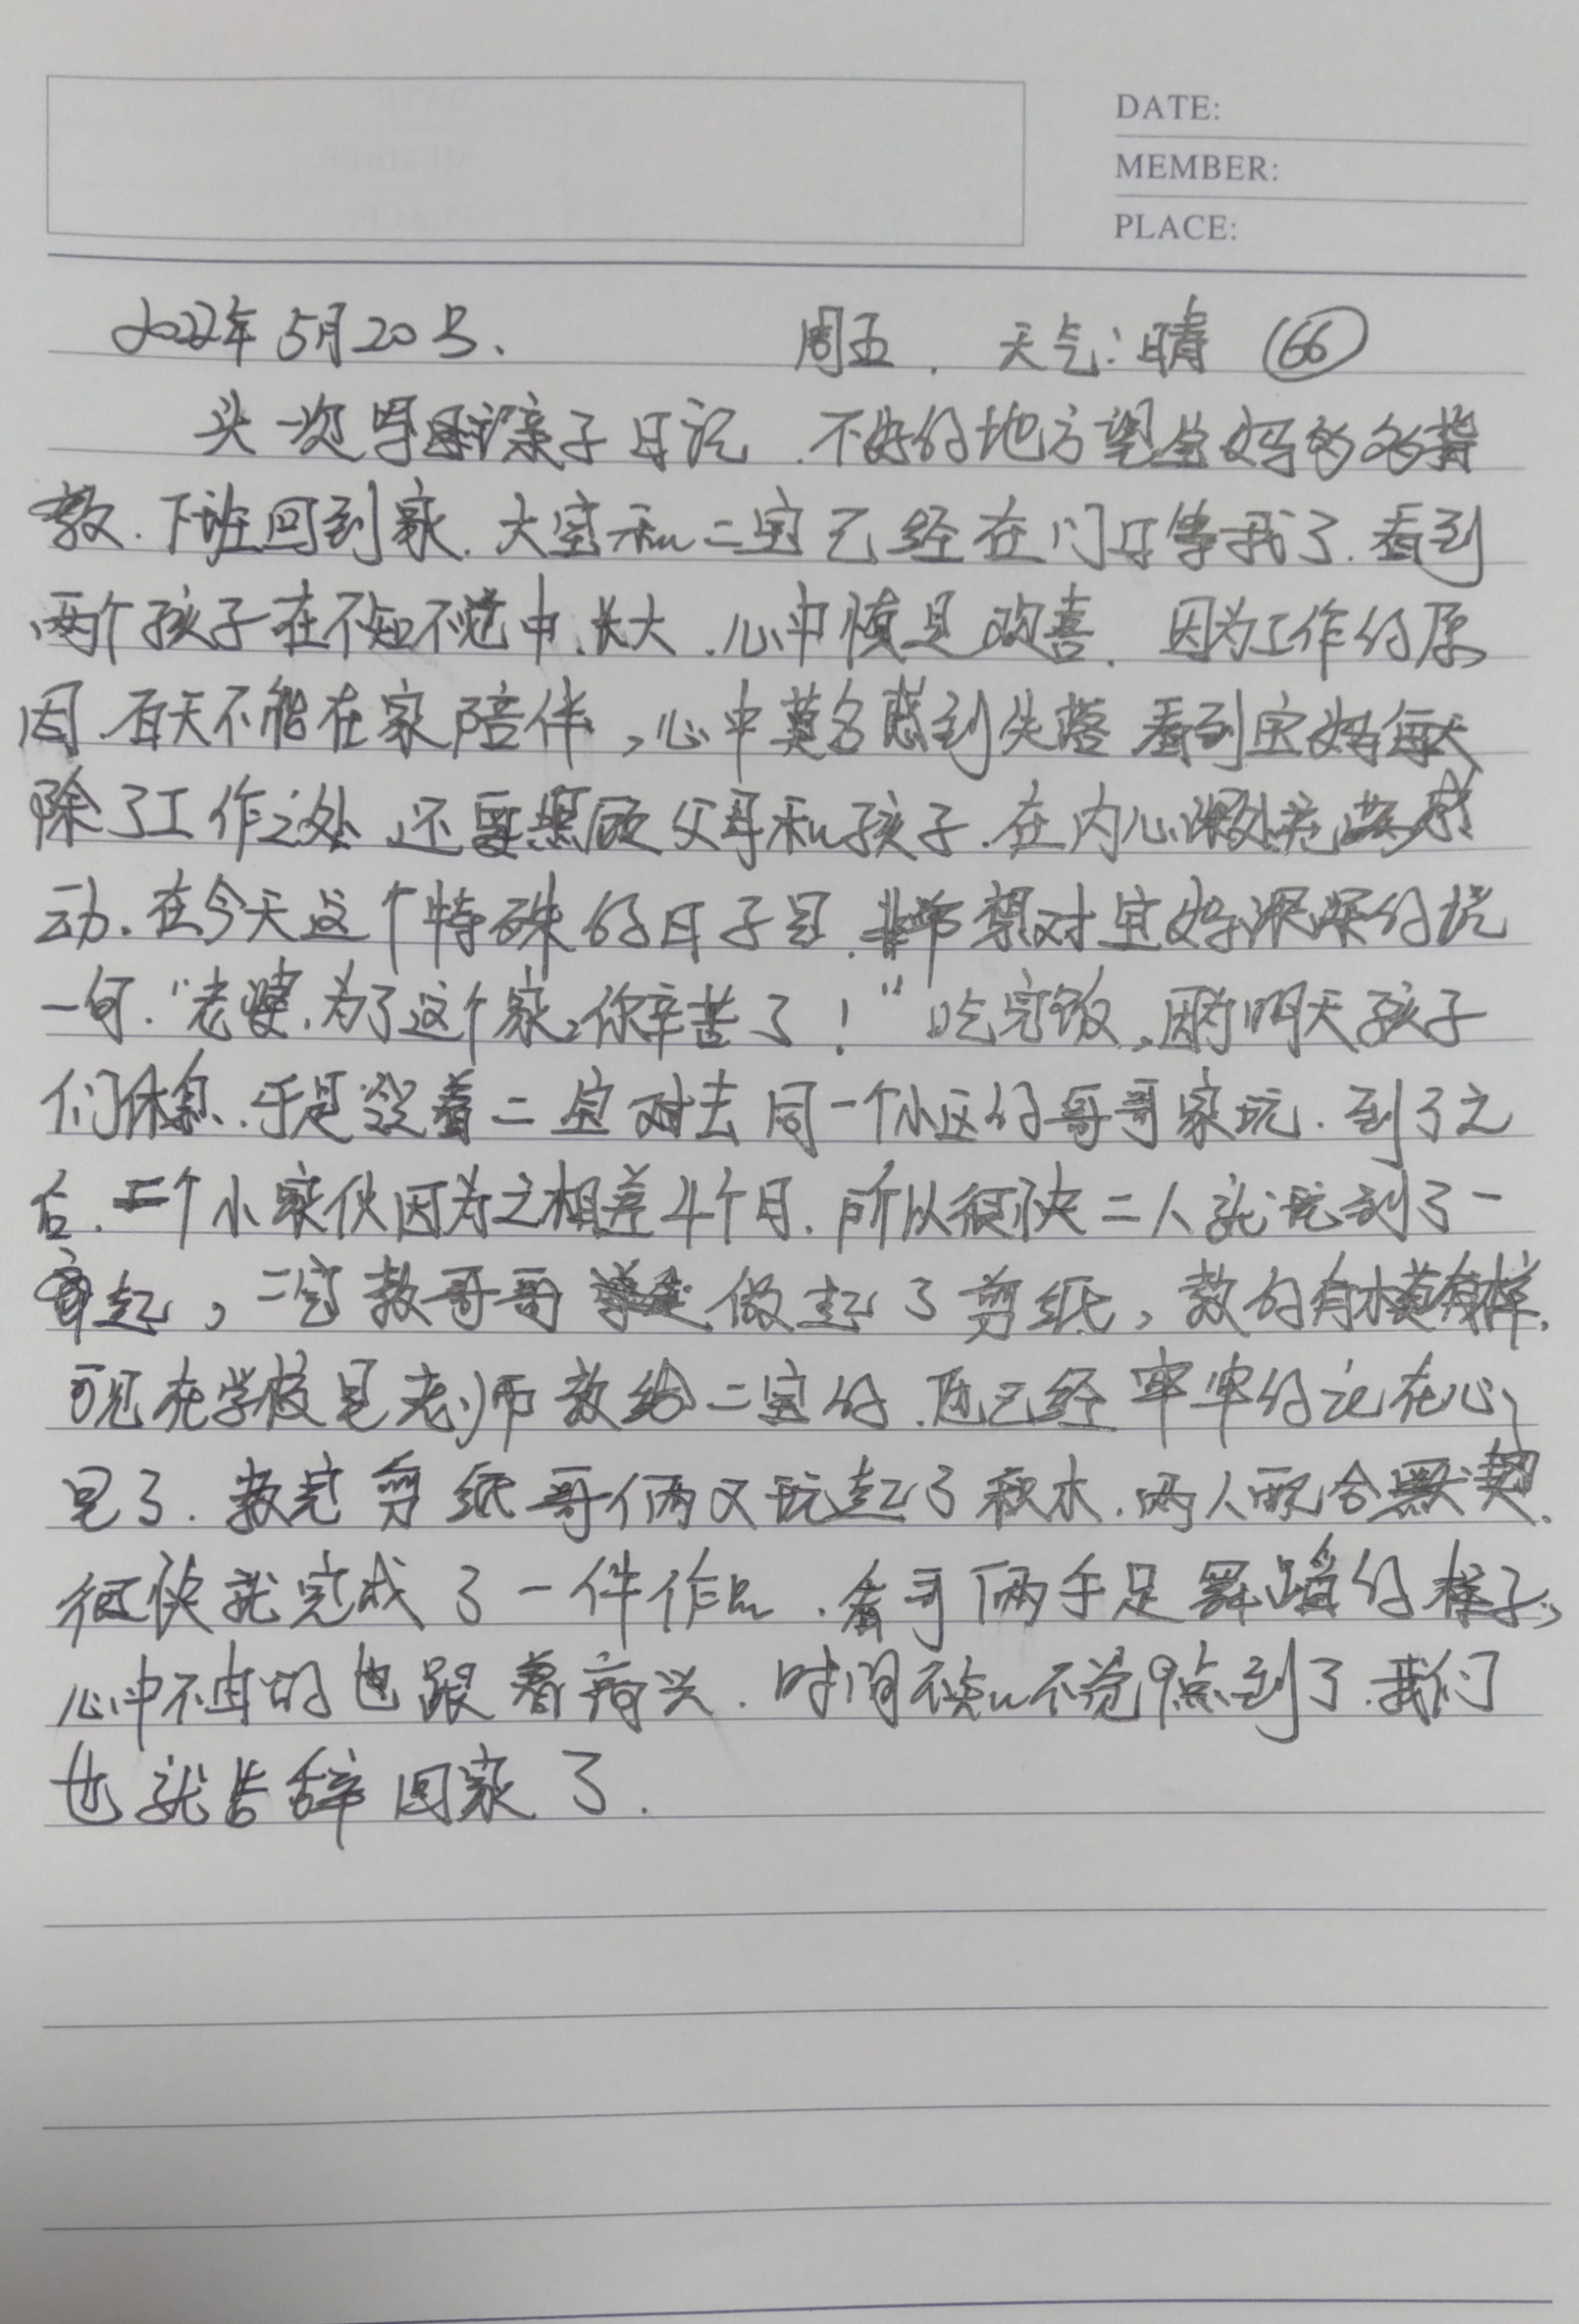 DATE:
MEMBER:
PLACE:
2022年5月20号. 周五. 天气:晴 66
头一次写亲子日记.不好的地方望宝妈多多指
教.下班回到家.大宝和二宝已经在门口等我了.看到
两个孩子在不知不觉中.长大.心中慎是欢喜.因为工作的原
因.白天不能在家陪伴,心中莫名感到失落 看到宝妈每天
除了工作之处 还要照顾父母和孩子.在内心深处充满感
动.在今天这个特殊的日子里.非常想对宝妈深深的说
一句."老婆.为了这个家,你辛苦了!"吃完饭,因为明天孩子
们休息.于是带着二宝去同一个小区的哥哥家玩.到了之
后.二个小家伙因为之相差4个月.所以很快二人就玩到了一
起,二宝教哥哥做起了剪纸,教的有模有样.
可见在学校是老师教给二宝的.他已经牢牢的记在心
里了.教完剪纸哥俩又玩起了积木.两人配合默契.
很快就完成了一件作品.看哥俩手足舞蹈的样子,
心中不由的也跟着高兴.时间不知不觉9点到了.我们
也就告辞回家了.